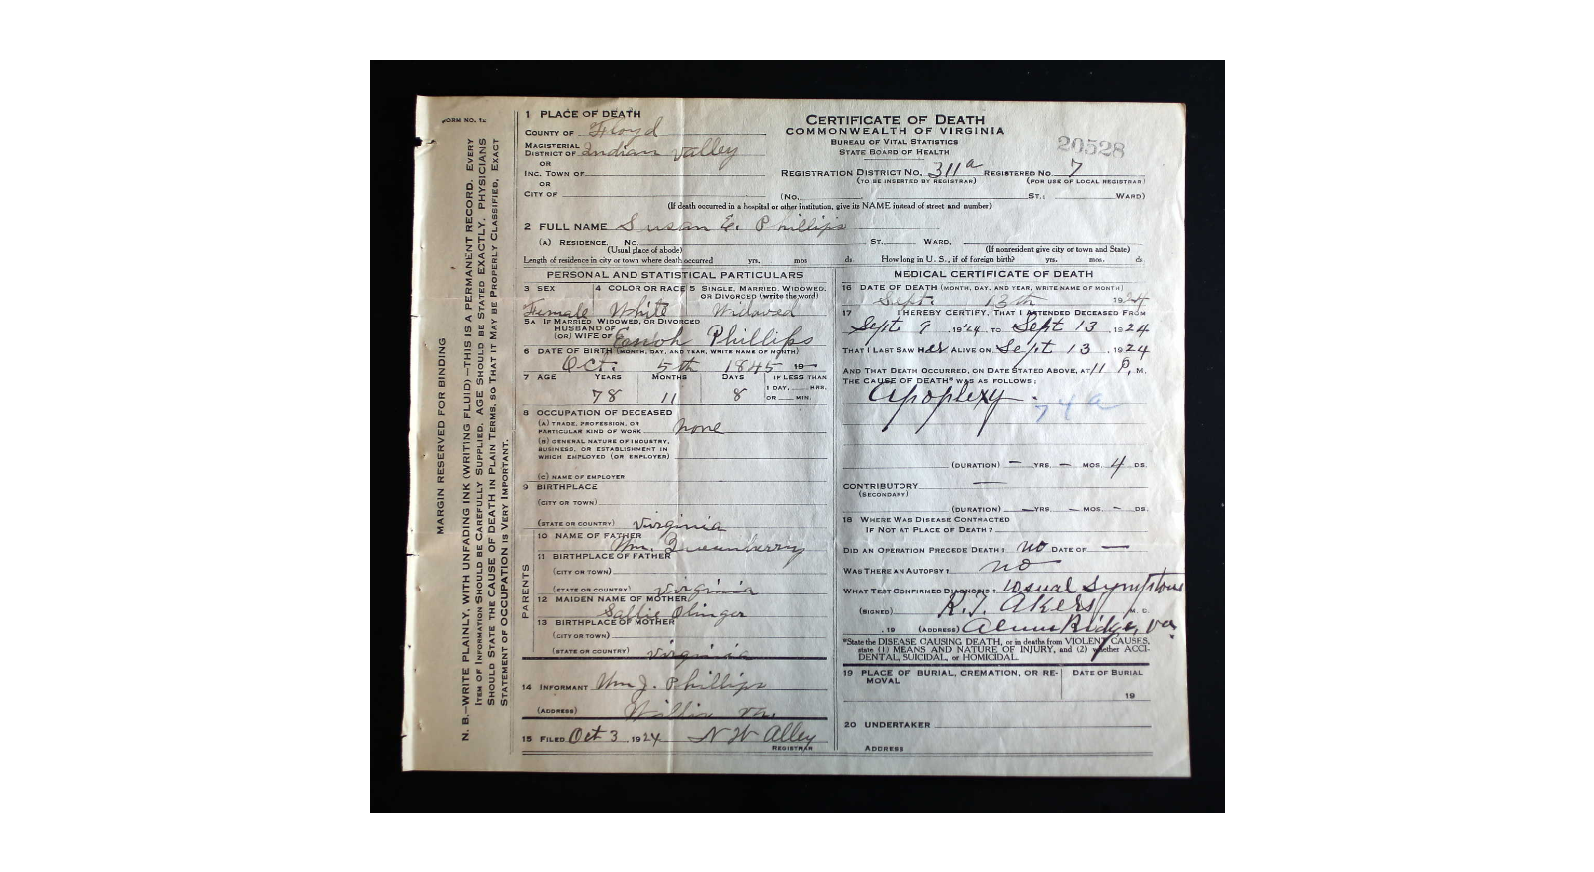 FORM NO. 12
MARGIN RESERVED FOR BINDING
N. B.—WRITE PLAINLY, WITH UNFADING INK (WRITING FLUID)—THIS IS A PERMANENT RECORD. EVERY
ITEM OF INFORMATION SHOULD BE CAREFULLY SUPPLIED. AGE SHOULD BE STATED EXACTLY. PHYSICIANS
SHOULD STATE THE CAUSE OF DEATH IN PLAIN TERMS, SO THAT IT MAY BE PROPERLY CLASSIFIED. EXACT
STATEMENT OF OCCUPATION IS VERY IMPORTANT.
1 PLACE OF DEATH
COUNTY OF Floyd
MAGISTERIAL
DISTRICT OF Indian Valley
OR
INC. TOWN OF
OR
CITY OF
CERTIFICATE OF DEATH
COMMONWEALTH OF VIRGINIA
BUREAU OF VITAL STATISTICS
STATE BOARD OF HEALTH
20528
REGISTRATION DISTRICT NO. 311a REGISTERED NO. 7
(TO BE INSERTED BY REGISTRAR) (FOR USE OF LOCAL REGISTRAR)
(NO. ST.; WARD)
(If death occurred in a hospital or other institution, give its NAME instead of street and number)
2 FULL NAME Susan E. Phillips
(A) RESIDENCE, NO. ST. WARD.
(Usual place of abode) (If nonresident give city or town and State)
Length of residence in city or town where death occurred yrs. mos ds. How long in U. S., if of foreign birth? yrs. mos. ds.
PERSONAL AND STATISTICAL PARTICULARS
3 SEX 4 COLOR OR RACE 5 SINGLE, MARRIED, WIDOWED, OR DIVORCED (write the word)
Female White Widowed
5A IF MARRIED WIDOWED, OR DIVORCED
HUSBAND OF
(OR) WIFE OF Phillips
6 DATE OF BIRTH (MONTH, DAY, AND YEAR, WRITE NAME OF MONTH)
Oct. 5th 1845 19—
7 AGE YEARS MONTHS DAYS IF LESS THAN
1 DAY, HRS.
OR MIN.
78 11 8
8 OCCUPATION OF DECEASED
(A) TRADE, PROFESSION, OR
PARTICULAR KIND OF WORK none
(B) GENERAL NATURE OF INDUSTRY,
BUSINESS, OR ESTABLISHMENT IN
WHICH EMPLOYED (OR EMPLOYER)
(C) NAME OF EMPLOYER
9 BIRTHPLACE
(CITY OR TOWN)
(STATE OR COUNTRY) Virginia
PARENTS
10 NAME OF FATHER Wm. Quesenberry
11 BIRTHPLACE OF FATHER
(CITY OR TOWN)
(STATE OR COUNTRY) Virginia
12 MAIDEN NAME OF MOTHER
Sallie Olinger
13 BIRTHPLACE OF MOTHER
(CITY OR TOWN)
(STATE OR COUNTRY) Virginia
14 INFORMANT Wm J. Phillips
(ADDRESS) Willis Va.
15 FILED Oct 3, 1924 N W Alley
REGISTRAR
MEDICAL CERTIFICATE OF DEATH
16 DATE OF DEATH (MONTH, DAY, AND YEAR, WRITE NAME OF MONTH)
Sept. 13th 1924
17 I HEREBY CERTIFY, THAT I ATTENDED DECEASED FROM
Sept 9, 1924, TO Sept 13, 1924
THAT I LAST SAW Her ALIVE ON Sept 13, 1924
AND THAT DEATH OCCURRED, ON DATE STATED ABOVE, AT 11 P. M.
THE CAUSE OF DEATH* WAS AS FOLLOWS:
Apoplexy.
74a
(DURATION) — YRS. — MOS. 4 DS.
CONTRIBUTORY —
(SECONDARY)
(DURATION) — YRS. — MOS. — DS.
18 WHERE WAS DISEASE CONTRACTED
IF NOT AT PLACE OF DEATH?
DID AN OPERATION PRECEDE DEATH? no DATE OF —
WAS THERE AN AUTOPSY? no
WHAT TEST CONFIRMED DIAGNOSIS? Usual Symptoms
(SIGNED) R. T. Akers M. D.
, 19 (ADDRESS) Alum Ridge, Va.
*State the DISEASE CAUSING DEATH, or in deaths from VIOLENT CAUSES,
state (1) MEANS AND NATURE OF INJURY, and (2) whether ACCI-
DENTAL, SUICIDAL, or HOMICIDAL.
19 PLACE OF BURIAL, CREMATION, OR RE-
MOVAL
DATE OF BURIAL
19
20 UNDERTAKER
ADDRESS